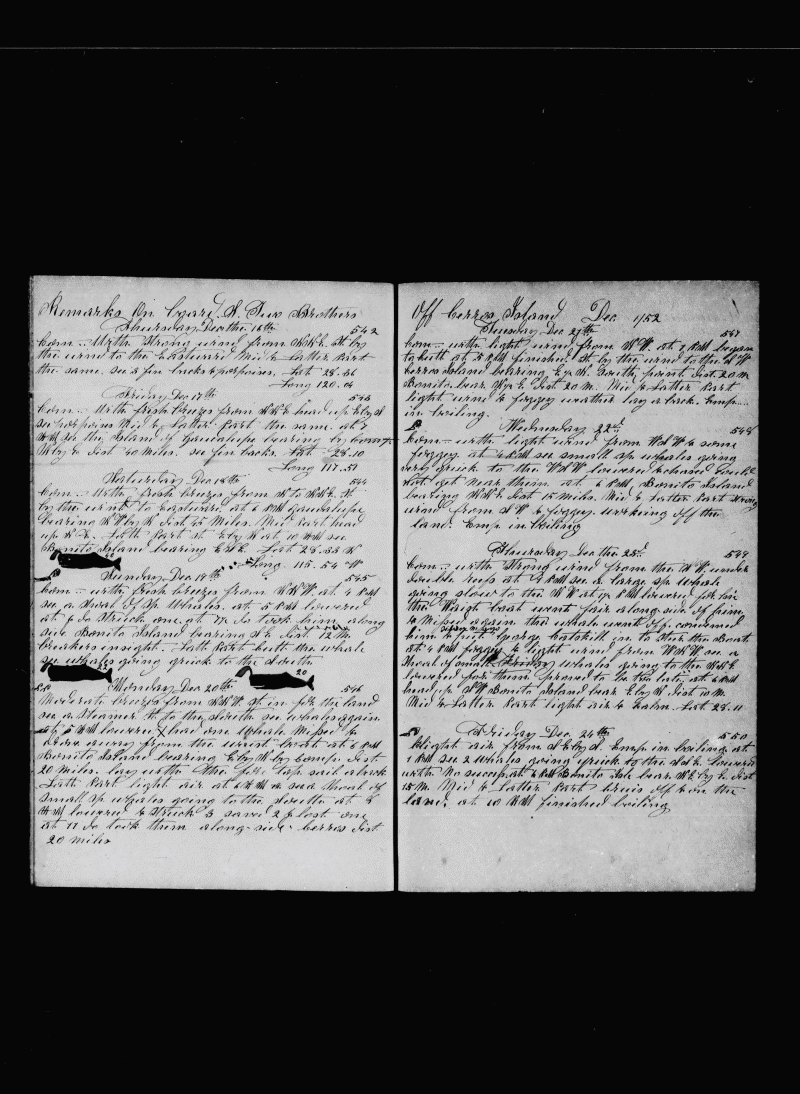 Remarks On board S. Two Brothers
Thursday Dec the 16th 542
Com -- With Strong wind from NNE. St by
the wind to the Eastward Mid & Latter Part
the same. see 2 fin backs & porpoises. Lat 28.36
Long 120.04
Friday Dec 17th 543
Com -- With fresh breeze from NNE head up E by S
see porpoises Mid & Latter Part the same. at 7
AM see the Island of Guadalupe bearing by comp
N by E Dist 40 Miles. see fin backs. Lat 28.10
Long 117.51
Saturday Dec 18th 544
Com -- With fresh breeze from N to NNE. St
by the wind to Eastward, at 6 PM Guadalupe
bearing NW by N Dist 25 Miles. Mid Part head
up N E. Latt Part St E by N at 10 AM see
Bonito Island bearing ENE. Lat 28.35 N
Long. 115.54 W
40
Sunday Dec 19th 545
Com -- with fresh breeze from NNW. at 4 PM
see a Shoal of Sp Whales. at 5 PM lowered
at 6 do Struck one. at 7 1/2 do took him along
side Bonito Island bearing S E Dist 12 M
breakers insight. Latt Part both the whale
see whales going quick to the South
20
20
Monday Dec 20th 546
Moderate breeze from NNW. St in for the land
see a Steamer St to the South see whales again
at 5 PM lowered had one Whale Missed &
Drove away from the waist boat at 6 PM
Bonito Island bearing E by N by Comp. Dist
20 Miles. lay with the fore top sail aback
Latt Part light air at 6 AM see a shoal of
small Sp whales going to the South at 8
AM lowered & Struck 3 saved 2 & lost one
at 11 do took them along-side - Cerros Dist
20 miles
Off Cerros Island Dec 1/52
Tuesday Dec 21th 547
Com -- with light wind from NW. at 2 PM began
to both at 3 PM finished. St by the wind to the SW
Cerros Island bearing South point Dist 20 M
Bonito bear Dist 20 M. Mid & Latter Part
light wind & foggy weather lay aback. Emp--
in boiling.
Wednesday 22d 548
Com -- with light wind from NW & some
foggy at 4 PM see small sp whales going
very quick to the WNW lowered & chased could
not get near them at 6 PM, Bonito Island
bearing NNE Dist 15 Miles. Mid & Latter Part strong
wind from NW & foggy. working off the
land. Emp in boiling
Thursday Dec the 23d 549
Com -- with Strong wind from the NW. under
double reefs at 2 PM see a large sp whale
going slow to the NW at PM lowered for him
the Waist boat went fair along side of him
& Missed again the whale went off.
him & put Georg Catskill in to Steer the Boat
at 4 PM foggy & light wind from WNW see a
Shoal of small whales going to the NNE
lowered for them proved to be too late, at 6 PM
head, to SW Bonito Island bear E by N Dist 10 M.
Mid & Latter Part light air & Calm. Lat 28.11
Friday Dec 24th 550
Slight air from S E by S. Emp in boiling at
1 PM see 2 whales going quick to the SSE lowered
with No success at 6 PM Bonito Isle bear NE by E Dist
15 M. Mid & Latter Part bruis off & on the
land, at 10 PM finished boiling